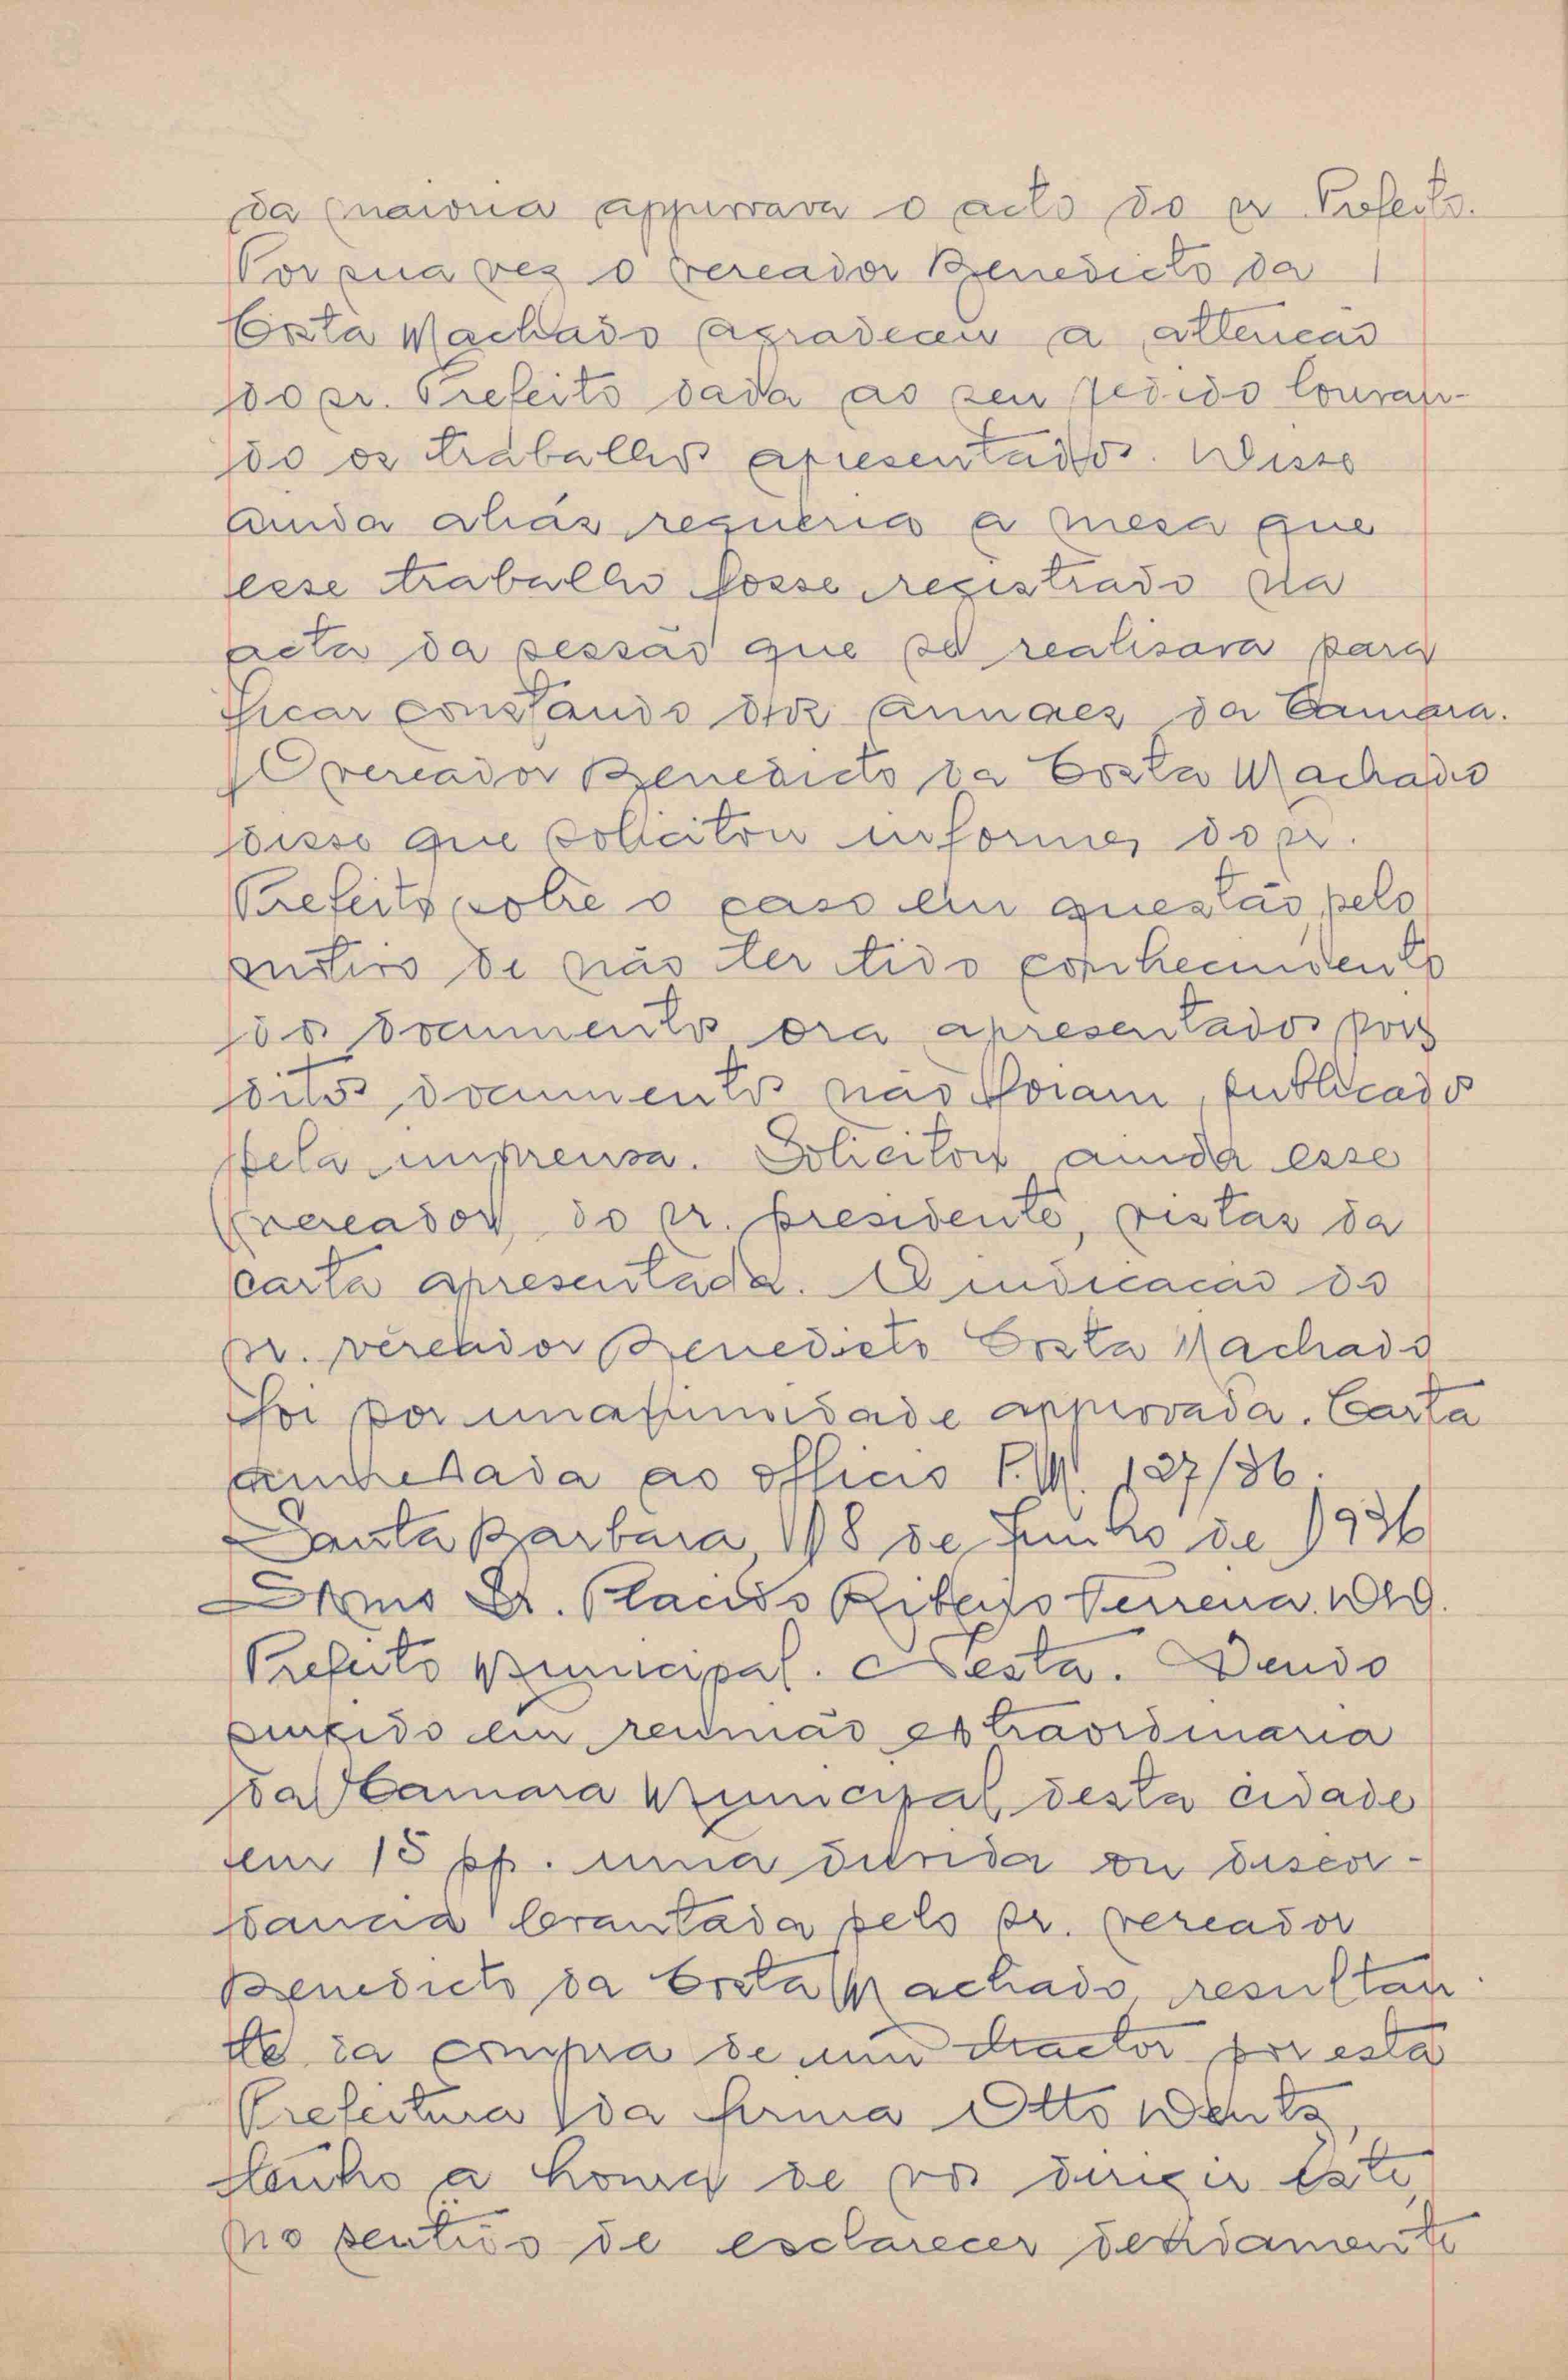 da maioria approvava o acto do sr Prefeito.
Por sua vez o vereador Benedicto da
Costa Machado agradeceu a attenção
do sr. Prefeito dada ao seu pedido louvan-
do os trabalhos apresentados. Disse
ainda aliás requeria a mesa que
esse trabalho fosse registrado na
acta da sessão que se realisara para
ficar constando dos annaes da Camara.
O vereador Benedicto da Costa Machado
disse que sollicitou informes do sr.
Prefeito sobre o caso em questão pelo
motivo de não ter tido conhecimento
dos documentos ora apresentados pois
ditos documentos não foram publicados
pela imprensa. Solicitou ainda esse
vereador, do sr. presidente, vistas da
carta apresentada. A indicacão do
sr. vereador Benedicto Costa Machado
foi por unanimidade approvada. Carta
annexada ao officio P.M. 127/36.
Santa Barbara, 18 de Junho de 1936
Exmo Sr. Placido Ribeiro Ferreira. DD.
Prefeito Municipal. Nesta. Tendo
surgido em reunião extraordinaria
da Camara Municipal desta cidade
em 15 pp. uma duvida ou discor-
dancia levantada pelo sr. vereador
Benedicto da Costa Machado, resultan
te da compra de um tractor por esta
Prefeitura da firma Otto Wentz,
tenho a honra de vos dirigir este,
no sentido de esclarecer devidamente